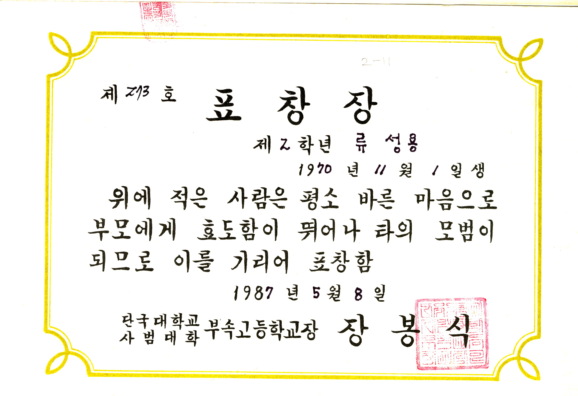 2-11
제 273 호
표창장
제 2 학년 류 성용
1970 년 11 월 1 일생
위에 적은 사람은 평소 바른 마음으로
부모에게 효도함이 뛰어나 타의 모범이
되므로 이를 기리어 표창함
1987 년 5 월 8 일
단국대학교
사범대학 부속고등학교장 장 봉 식